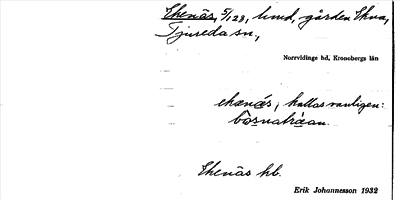 Ekenäs, 5/128, lund, gården Ekna,
Tjureda sn,
Norrvidinge hd, Kronobergs län
ekanäs, kallas vanligen:
Ekenäs hb.
Erik Johannesson 1932